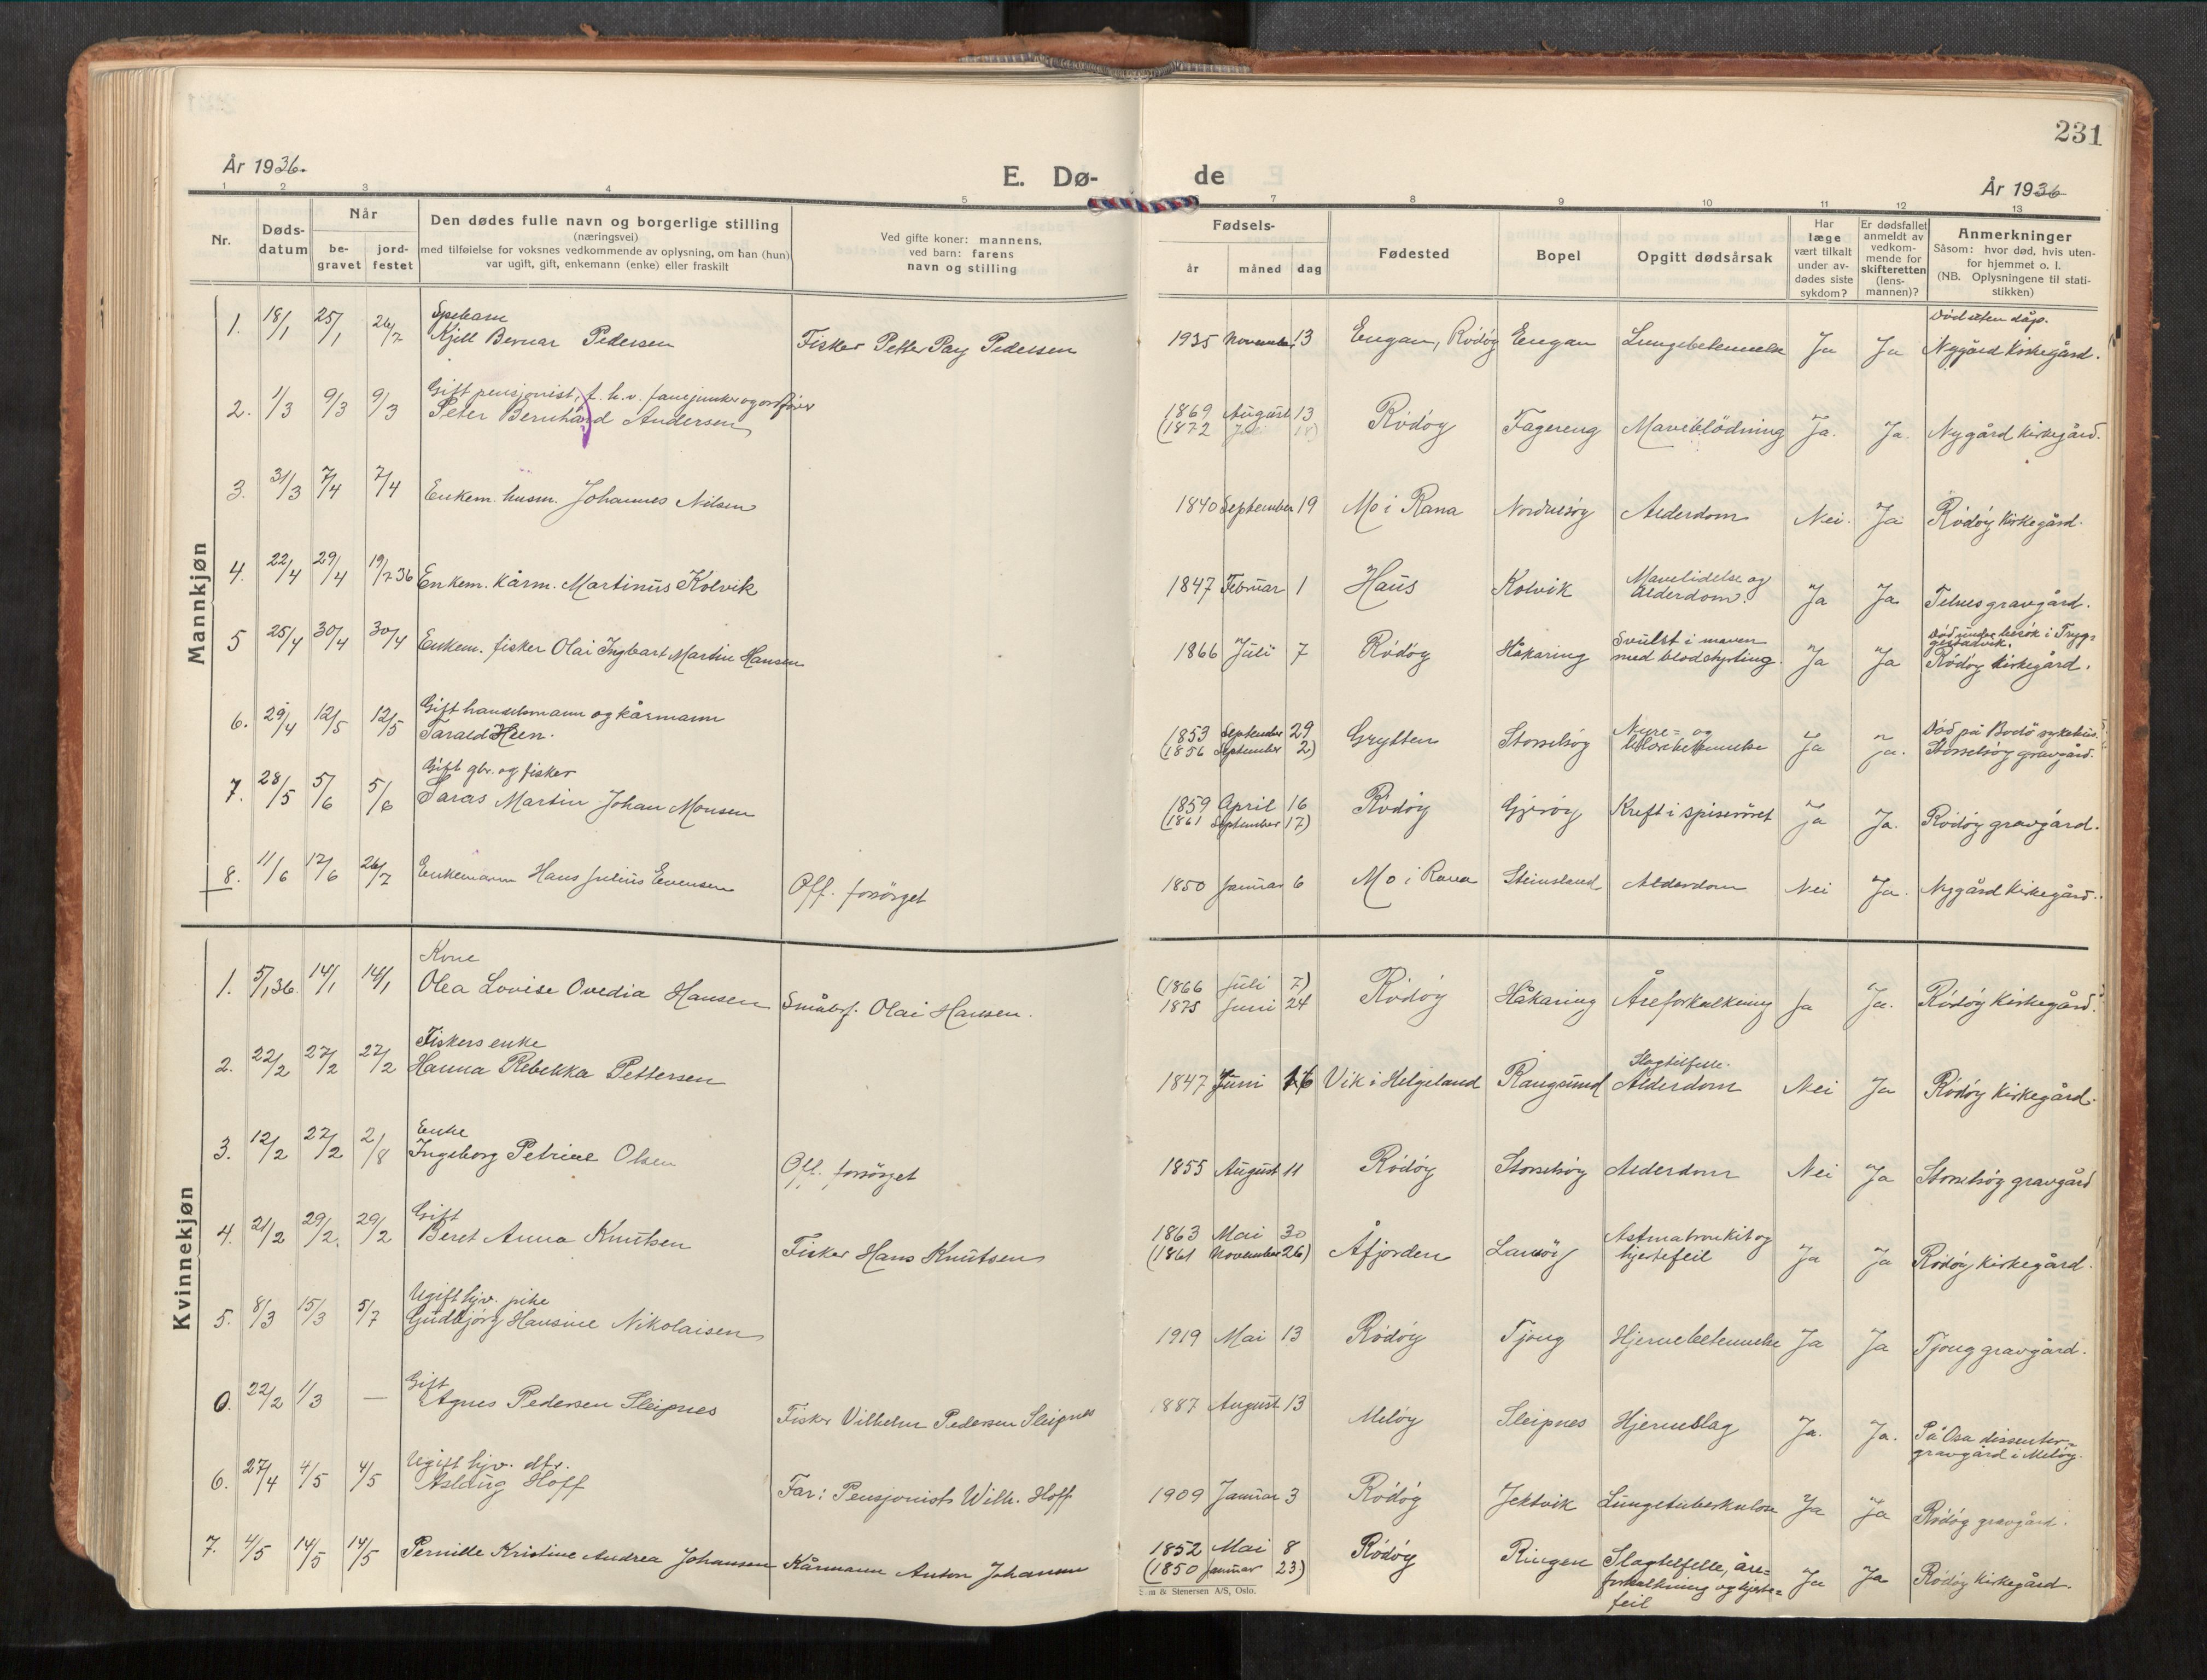 231
År 1936.
E. Dø-
de
År 1936
1 2 3 4 5 7 8 9 10 11 12 13
Nr.
Døds-
datum
Når
be-
gravet
jord-
festet
Den dødes fulle navn og borgerlige stilling
(næringsvei)
med tilføielse for voksnes vedkommende av oplysning, om han (hun)
var ugift, gift, enkemann (enke) eller fraskilt
Ved gifte koner: mannens,
ved barn: farens
navn og stilling
Fødsels-
år måned dag
Fødested
Bopel
Opgitt dødsårsak
Har
læge
vært tilkalt
under av-
dødes siste
sykdom?
Er dødsfallet
anmeldt av
vedkom-
mende for
skifteretten
(lens-
mannen)?
Anmerkninger
Såsom: hvor død, hvis uten-
for hjemmet o. l.
(NB. Oplysningene til stati-
stikken)
Mannkjøn
Spebarn Død uten dåp.
1. 18/1 25/1 26/7 Kjell Bernar Pedersen Fisker Petter Pay Pedersen 1935 November 13 Engan, Rödöy Engan Lungebetennelse Ja Ja Nygård Kirkegård.
Gift pensjonist, f. h.v. fanejunker og ordfører
2. 1/3 9/3 9/3 Peter Bernhard Andersen 1869 August 13 Rödöy Fagereng Maveblödning Ja. Ja. Nygård kirkegård.
(1872 18)
3. 31/3 7/4 7/4 Enkem. husm. Johannes Nilsen 1840 September 19 Mo i Rana Nordnesöy Alderdom Nei. Ja Rödöy Kirkegård.
4. 22/4 29/4 19/7 36 Enkem. kårm. Martinus Kolvik 1847 Februar 1 Haus Kolvik Mavelidelse og Ja Ja Telnes gravgård.
Alderdom.
5 25/4 30/4 30/4 Enkem. fisker Olai Ingbart Martin Hansen 1866 Juli 7 Rödöy Håkaring Svulst i maven Ja Ja Död under besök i Tryg-
med blodstyrting. gestadvik.
Rödöy kirkegård.
Gift handelsmann og kårmann
6. 29/4 12/5 12/5 Tarald Heen. 1853 September 29 Grytten Storselsöy Nyre- og Ja Ja. Död på Bodö sykehus.
(1856 September 2) blærebetennelse Storselsöy gravgård.
Gift gbr. og fisker
7. 28/5 5/6 5/6 Saras Martin Johan Monsen 1859 April 16 Rödöy Gjeröy Kreft i spiseröret Ja Ja. Rödöy gravgård.
(1861 September 17)
8. 11/6 17/6 26/7 Enkemann Hans Julius Evensen Off. forsörget 1850 Januar 6 Mo i Rana Steinsland Alderdom Nei Ja. Nygård Kirkegård.
Kvinnekjøn
Kone (1866 Juli 7)
1. 5/1 36. 14/1 14/1 Olea Lovise Ovedia Hansen Småbrf. Olai Hansen. 1875 Juni 24 Rödöy Håkaring Åreforkalkning Ja Ja. Rödöy Kirkegård.
Fiskers enke Slagtilfelle.
2. 22/2 27/2 27/2 Hanna Rebekka Pettersen 1847 Juni 16 Vik i Helgeland Rangsund Alderdom Nei Ja Rödöy kirkegård.
Enke
3. 12/2 27/2 2/8 Ingeborg Petrine Olsen Off. forsörget 1855 August 11 Rödöy Storselsöy Alderdom Nei Ja Storselsöy gravgård
Gift
4. 21/2 29/2. 29/2 Beret Anna Knutsen Fisker Hans Knutsen 1863 Mai 30 Åfjorden Astmabronkit og Ja Ja Rödöy kirkegård.
(1861 November 26) hjertefeil
Ugift hjv. pike
5. 8/3 15/3 5/7 Gudbjörg Hansine Nikolaisen 1919 Mai 13 Rödöy Tjong Hjernebetennelse Ja Ja Tjong gravgård.
Gift
0. 22/2 1/3 — Agnes Pedersen Sleipnes Fisker Vilhelm Pedersen Sleipnes 1887 August 13 Melöy Sleipnes Hjerneslag Ja. Ja. På Osa dissenter-
gravgård i Melöy.
Ugift hjv. dtr.
6. 27/4 4/5 4/5 Aslaug Hoff Far: Pensjonist Wilh. Hoff 1909 Januar 3 Rödöy Jektvik Lungetuberkulose Ja Ja Rödöy gravgård.
7. 4/5 14/5 14/5 Pernille Kristine Andrea Johansen Kårmann Anton Johansen 1852 Mai 8 Rödöy Ringen Slagtilfelle, åre- Ja Ja Rödöy kirkegård.
(1850 Januar 23) forkalkning og hjerte-
feil
& Stenersen A/S, Oslo.